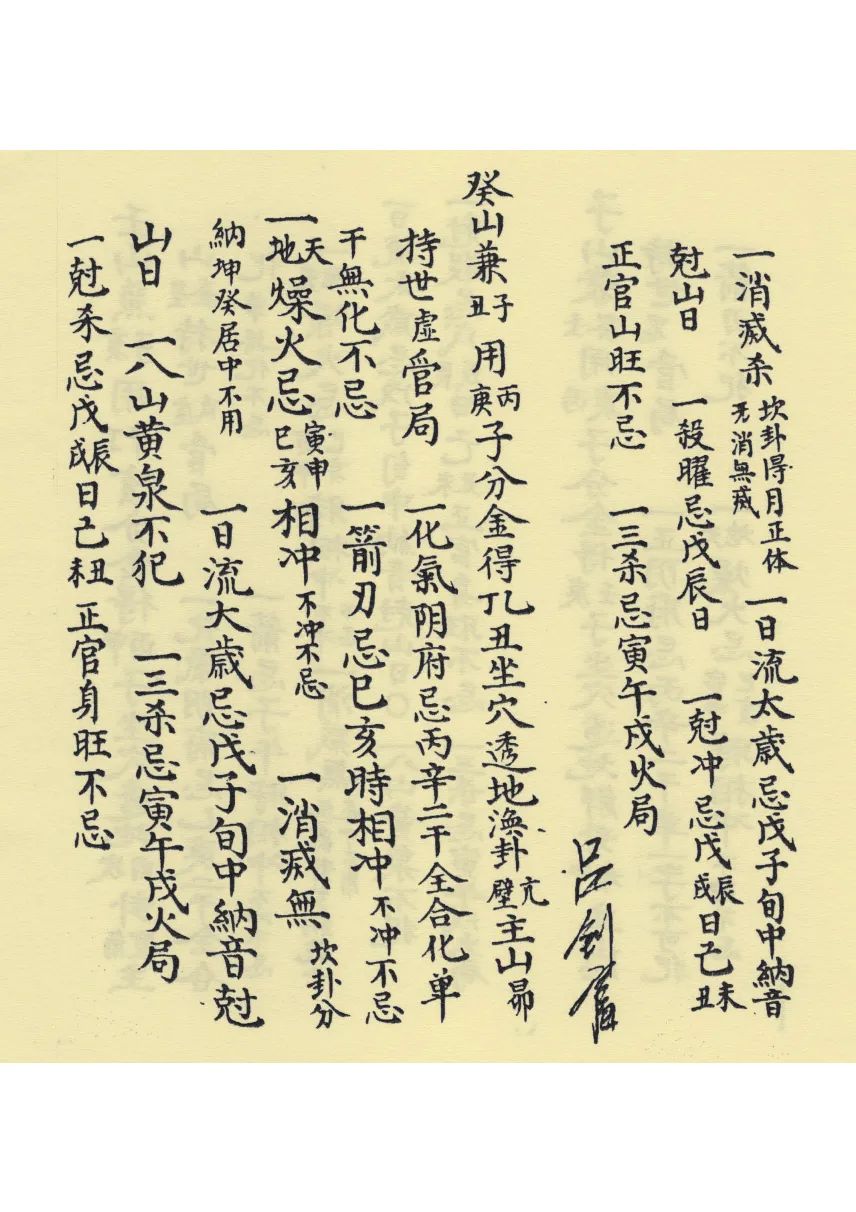 一消滅杀 坎卦得月正体 无消無滅 一日流太歲忌戊子旬中納音
尅山日 一殺曜忌戊辰日 一尅冲忌戊辰戌日己未丑
正官山旺不忌 一三杀忌寅午戌火局
癸山兼子丑用丙庚子分金得丁丑坐穴透地渙卦亢壁主山昴
持世虚管局 一化氣阴府忌丙辛二干全合化单
干無化不忌 一箭刃忌巳亥時相冲不冲不忌
一天地燥火忌寅申巳亥相冲不冲不忌 一消滅無坎卦分
納坤癸居中不用 一日流大歲忌戊子旬中納音尅
山日 一八山黄泉不犯 一三杀忌寅午戌火局
一尅杀忌戊辰戌日己丑未正官身旺不忌